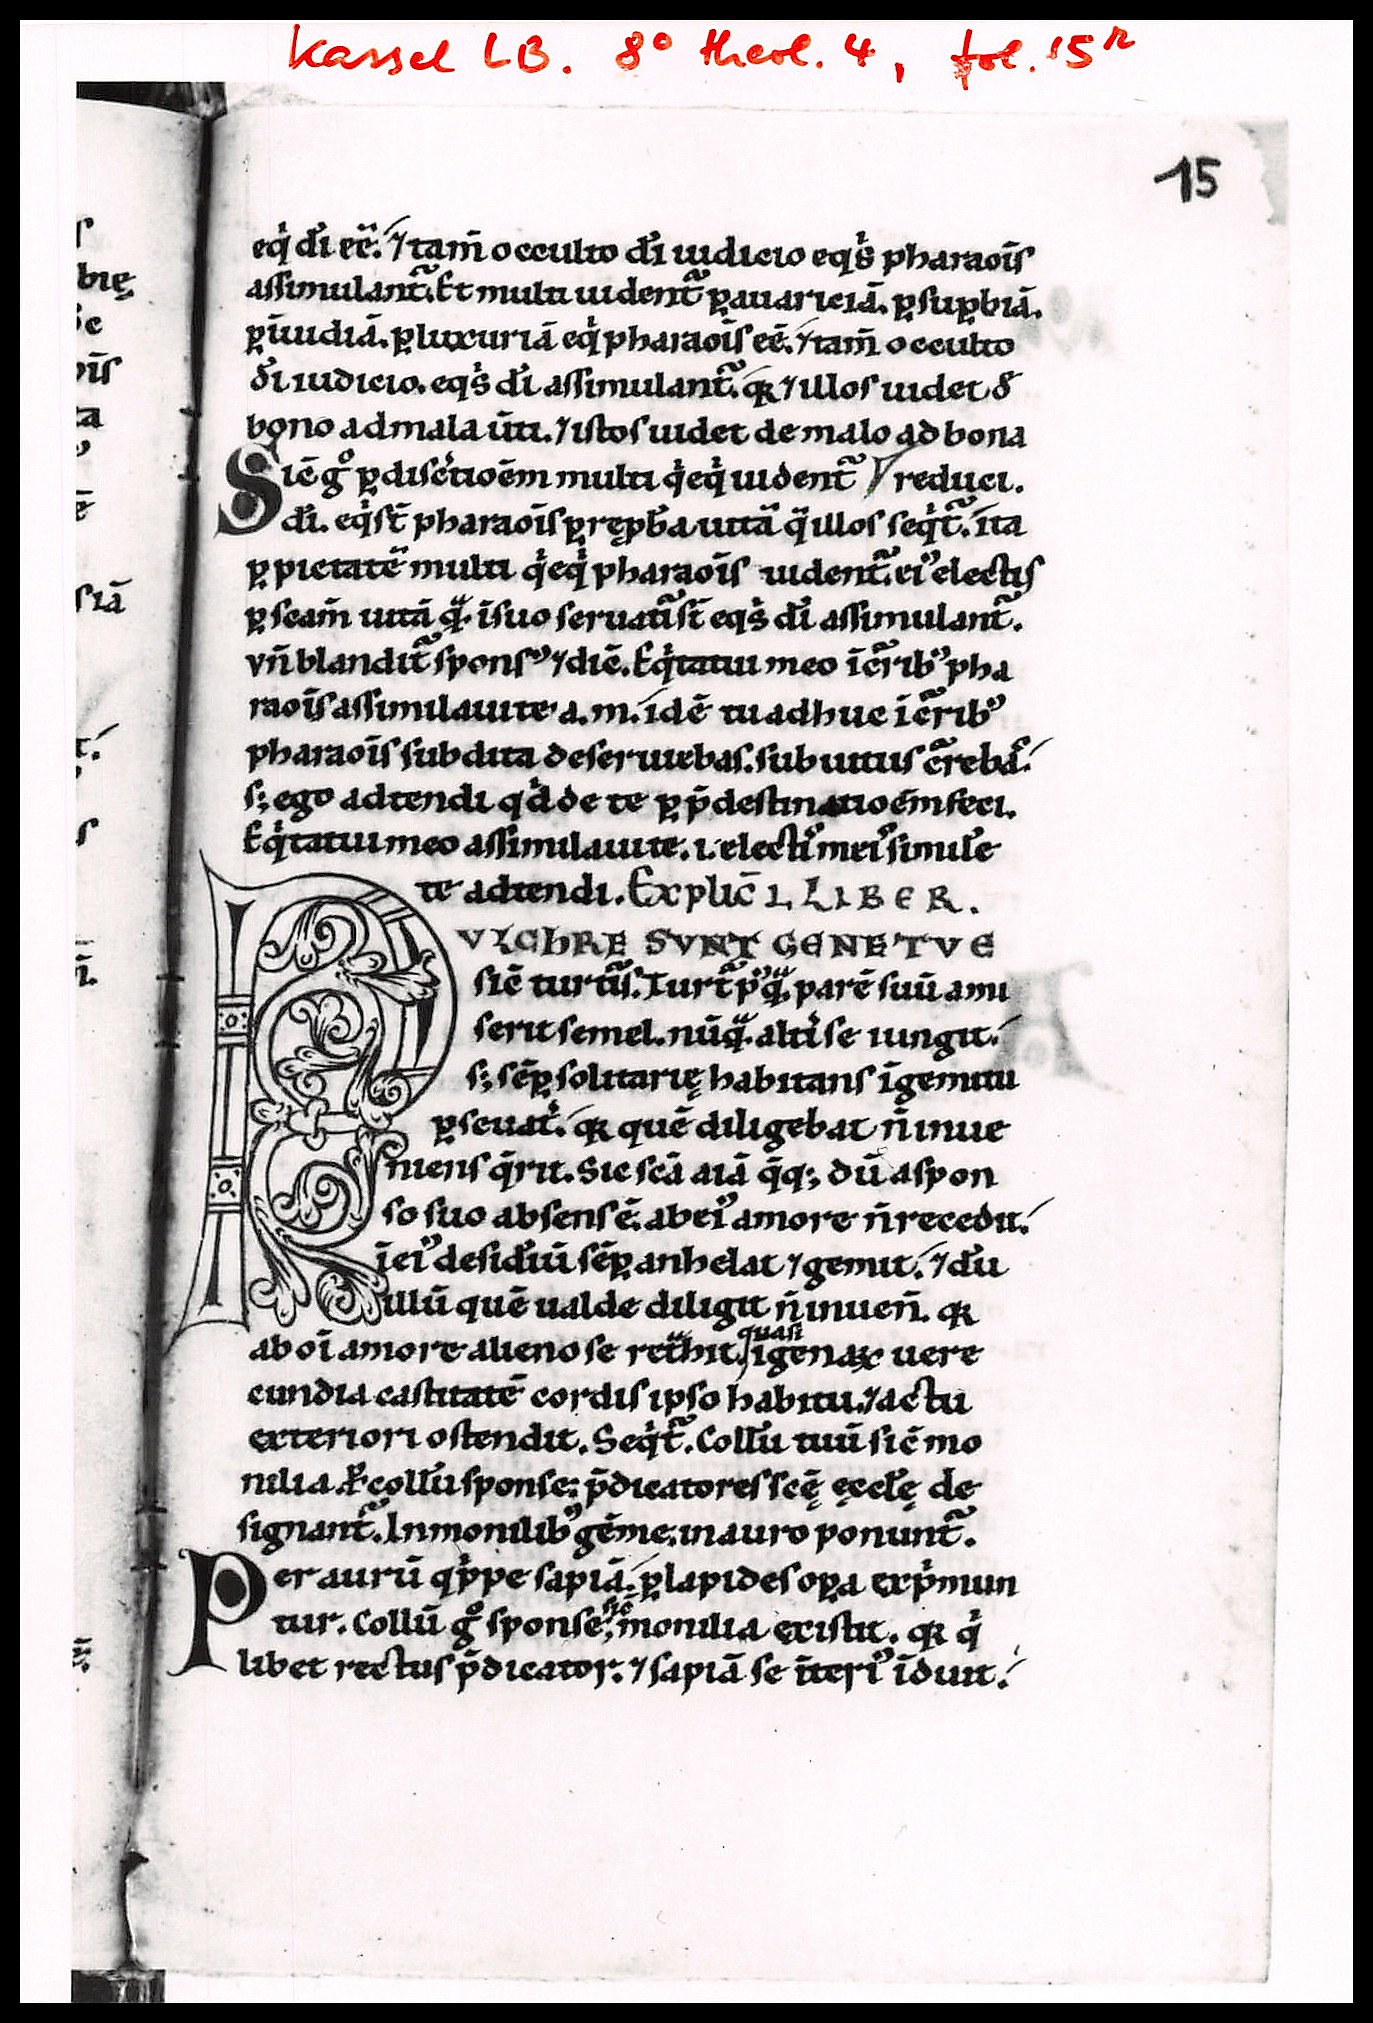 Kassel LB. 8° theol. 4, fol. 15r
15
eq̇ di̅ ee̅. ⁊ tam̅ occulto di̅ iudicio eqs̅ pharaoi̅s
assimulant᷑. Et multi uident᷑ ꝑ auariciā. ꝑ suꝑbiā.
ꝑ īuidiā. ꝑ luxuriā eq̇ pharaoi̅s ee̅. ⁊ tam̅ occulto
di̅ iudicio. eqs̅ di̅ assimulant᷑. qꝛ ⁊ illos uidet d̅
bono ad mala ūti. ⁊ istos uidet de malo ad bona
Sic̄ gͦ ꝑ discͥtioēm multi qͥ eq̇ uident᷑ reduci.
di̅. eq̇ st̅ pharaoi̅s ꝑ rep̱ba uitā qͣ illos seqͥt᷑. ita
ꝑ pietatē multi qͥ eq̇ pharaoi̅s uident᷑. eiꝰ electis
ꝑ scam̅ uitā qͣ. ī suo seruati st̅ eqs̅ di̅ assimulant᷑.
Vn̅ blandit᷑ sponsꝰ ⁊ dic̄. Eqͥtatui meo ī cͬribꝰ pha
raoi̅s assimilaui te a. m. idē tu adhuc ī cͬribꝰ
pharaoi̅s subdita deseruiebas. sub uitiis cͬrebaͬ.
s; ego adtendi qd̅ de te ꝑ p̄destinatioēm feci.
Eqͥtatui meo assimilaui te. i. electiꝰ meiꝰ simile̅
te adtendi. Explic̄ I. LIBER.
PVLCHRE SVNT GENE TVE
sic̄ turtͬis. Turtͬ pꝰqͣ. parē suū ami
serit semel. nūqͣ. altͥ se iungit.
s; sēꝑ solitarię habitans ī gemitu
ꝑseuat̅. qꝛ quē diligebat n̄ inue
niens qͥrit. Sic scā aīa q̄q; dū a spon
so suo absens ē. ab eiꝰ amore n̄ recedit.
ī eiꝰ desid̅iū sēꝑ anhelat ⁊ gemit. ⁊ dū
illū quē ualde diligit n̄ inuen̄. qꝛ
quasi
ab oī amore alieno se retͣhit. ī genaꝝ uere
cundia castitatē cordis ipso habitu. ⁊ actu
exteriori ostendit. Seqͥt᷑. Collū tuū sic̄ mo
nilia. Ꝑ collū sponse; p̄dicatores scę̄ ęccłę de
signant᷑. In monilibꝰ gēme. in auro ponunt᷑.
Per aurū qͥppe sapiā. ꝑ lapides oꝑa exp̱mun
sic̄
tur. Collū gͦ sponse; monilia existit. qꝛ qͥ
libet rectus p̄dicator. ⁊ sapiā se īteriꝰ īduit.